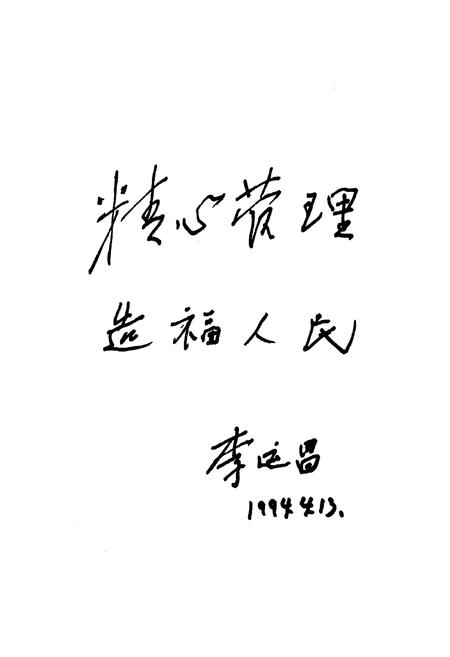 精心管理
造福人民
李运昌
1994.4.13.